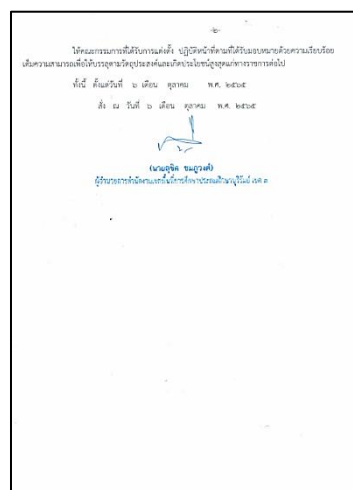 -๒-
ให้คณะกรรมการที่ได้รับการแต่งตั้ง ปฏิบัติหน้าที่ตามที่ได้รับมอบหมายด้วยความเรียบร้อย
เต็มความสามารถเพื่อให้บรรลุตามวัตถุประสงค์และเกิดประโยชน์สูงสุดแก่ทางราชการต่อไป
ทั้งนี้ ตั้งแต่วันที่ ๖ เดือน ตุลาคม พ.ศ. ๒๕๖๕
สั่ง ณ วันที่ ๖ เดือน ตุลาคม พ.ศ. ๒๕๖๕
ผู้อำนวยการสำนักงานเขตพื้นที่การศึกษาประถมศึกษาบุรีรัมย์ เขต ๓